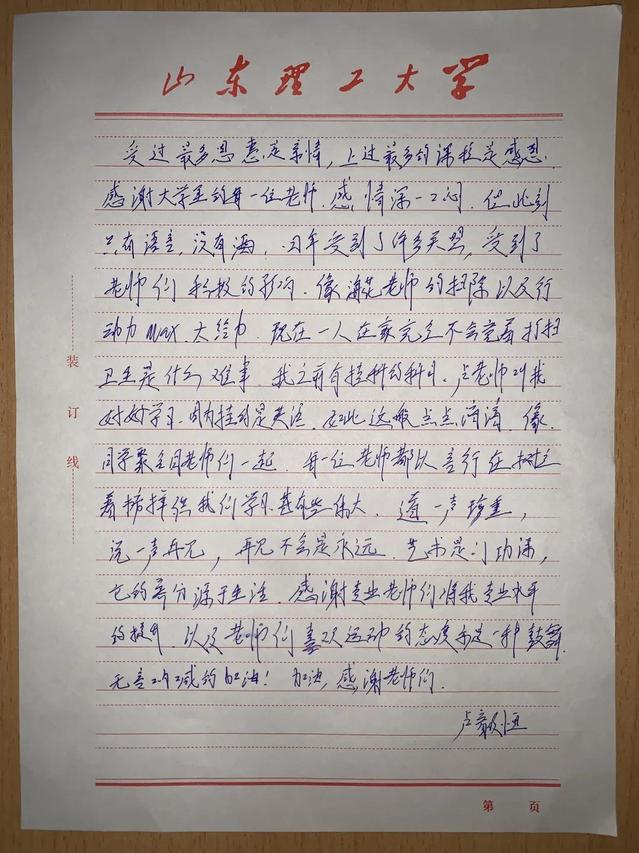 山东理工大学
受过最多恩惠是亲情，上过最多的课程是感恩.
感谢大学里的每一位老师.感情深一口闷.但此刻
只有语言,没有酒,四年受到了许多关照,受到了
老师们积极的影响.像 老师的扫除以及行
动力Max.大给力.现在一人在家完全不会觉着打扫
卫生是什么难事.我之前有挂科的科目.卢老师叫我
好好学习.因为挂的是英语.如此这般点点滴滴.像
同学聚会同老师们一起.每一位老师都以言行在树立
着榜样供我们学习甚有些伟大.道一声珍重，
说一声再见，再见不会是永远.艺术是门功课,
它的 分源于生活.感谢专业老师们将我专业水平
的提升.以及老师们喜欢运动的态度亦是一种鼓舞.
无言 的加油！加油,感谢老师们.
卢毅恒
装
订
线
第 页